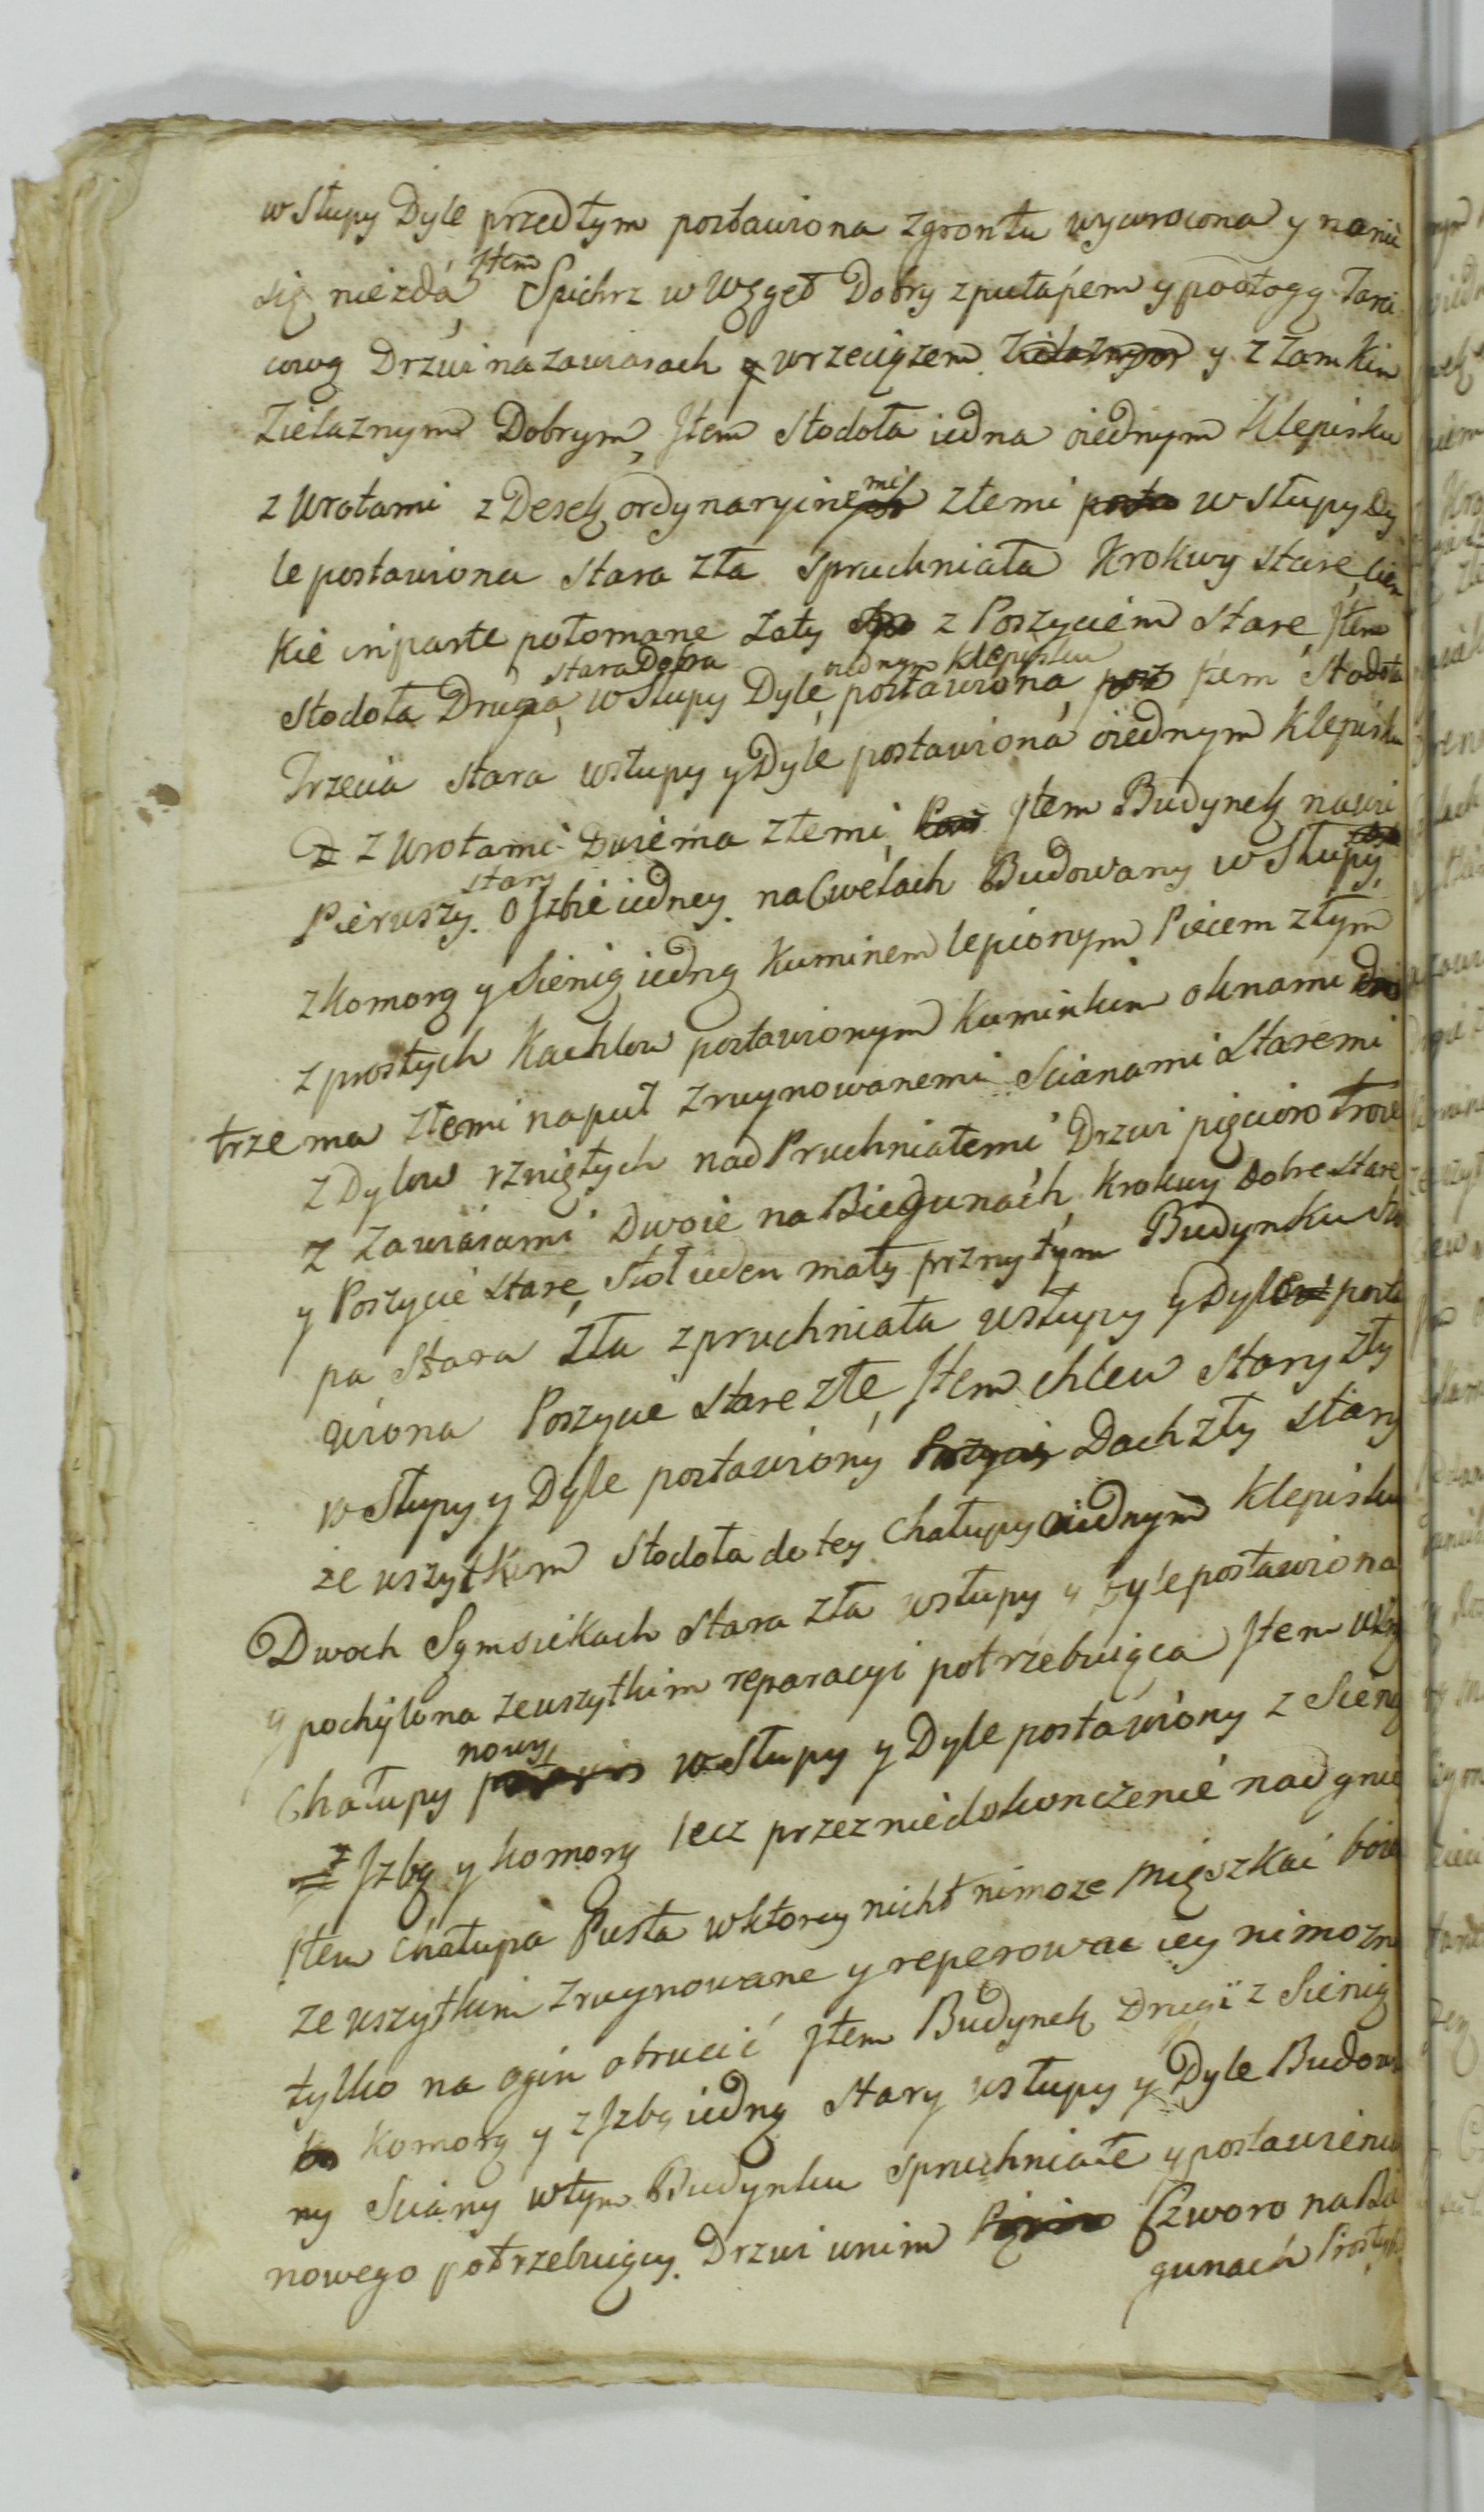 w Słupy Dyle przedtym postawiona zgrontu wywrocona y nanic
się niezda, Jtem Spichrz w Węgeł Dobry zpułapem y podłogą Tarci
cową Drzwi na zawiasach y wrzeciązem Zielaznym y z zamkiem
Zielaznym Dobrym, Jtem Stodoła iedna oiednym Klepisku
z Wrotami z Desek ordynaryinemi złemi w Słupy Dy
le postawiona stara zła spruchniała Krokwy stare, cien
kie inparte połomane Łaty z Poszyciem stare, Jtem
Stodoła Druga, stara Dobra w Słupy Dyle, postawiona, oiednym Klepisku Jtem Stodoła
Trzecia stara wsłupy y Dyle postawiona oiednym Klepisku
z Wrotami Dwiema złemi, Jtem Budynek nawsi
Pierwszy stary o Jzbie iedney na Cwelach Budowany w Słupy,
z Komorą y Sienią iedną Kuminem lepionym Piecem złym
z prostych Kachlow postawionym Kuminkiem oknami
trzema złemi naput zruynowanemi Scianami staremi
z Dylow rzniętych nadPruchniałemi Drzwi pięcioro troie
z zawiasami Dwoie na Biegunach, Krokwy Dobre stare
y Poszycie stare, Stoł ieden mały przytym Budynku Szo
pa stara zła zpruchniała wsłupy y Dyle posta
wiona Poszycie stare złe, Jtem chlew stary zły
w Słupy y Dyle postawiony Dach zły stary
ze wszytkim Stodoła do tey Chałupy oiednym Klepisku
Dwoch Sąmsiekach stara zła wsłupy y Dyle postawiona
y pochylona zewszytkim reparacyi potrzebuiąca Jtem
Chałupy nowy w Słupy y Dyle postawiony z Sienią
z Jzbą y komorą lecz przez niedokonczenie nad gnie
Jtem Chałupa Pusta wktorey nicht nimoze Mięszkai boie
ze wszytkim zruynowane y reperowac iey nimozna
tylko na ogin obrucić Jtem Budynek Drugi z Sienią
Komorą y z Jzbą iedną stary wsłupy y Dyle Budowa
ny Sciany wtym Budynku spruchniałe y postawienia
nowego potrzebuiący. Drzwi wnim Czworo na Bie
gunach Prostych